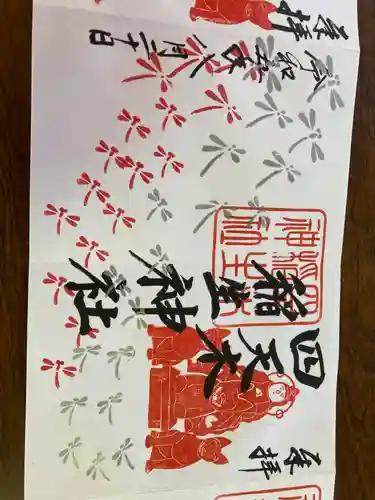 奉拝
四天木
稲生神社
令和五年
八月二十日
奉拝